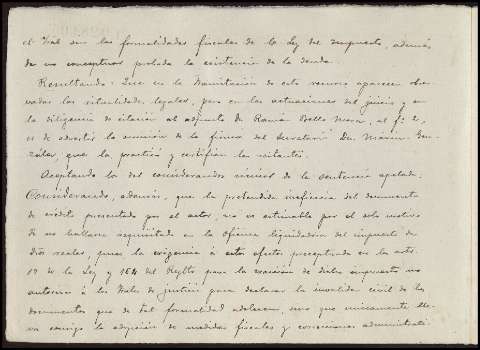 el Tral sin las formalidades fiscales de la Ley del impuesto, además
de no conceptuar probada la existencia de la deuda.
Resultando: Que en la tramitación de este recurso aparecen obser
vadas las ritualidades legales, pero en las actuaciones del juicio y en
la diligencia de citación al adjunto de Ramón Bello Mora, al fº 2,
es de advertir la omisión de la firma del Secretario Dn. Máximo Gon
zález, que la practicó y certifican los
Aceptando los del considerandos de la sentencia apelada:
Considerando, además, que la pretendida ineficacia del documento
de crédito presentado por el actor, no es estimable por el solo motivo
de no hallarse requisitado en la Oficina liquidadora del impuesto de
dros reales, pues la exigencia á estos efectos preceptuada en los arts.
de la Ley y 164 del Reglto para la exacción de dicho impuesto no
autoriza á los Trales de justicia para declarar la invalidez civil de los
documentos que de tal formalidad adolezcan, sino que únicamente lle-
va consigo la adopción de medidas fiscales y correcciones administrati